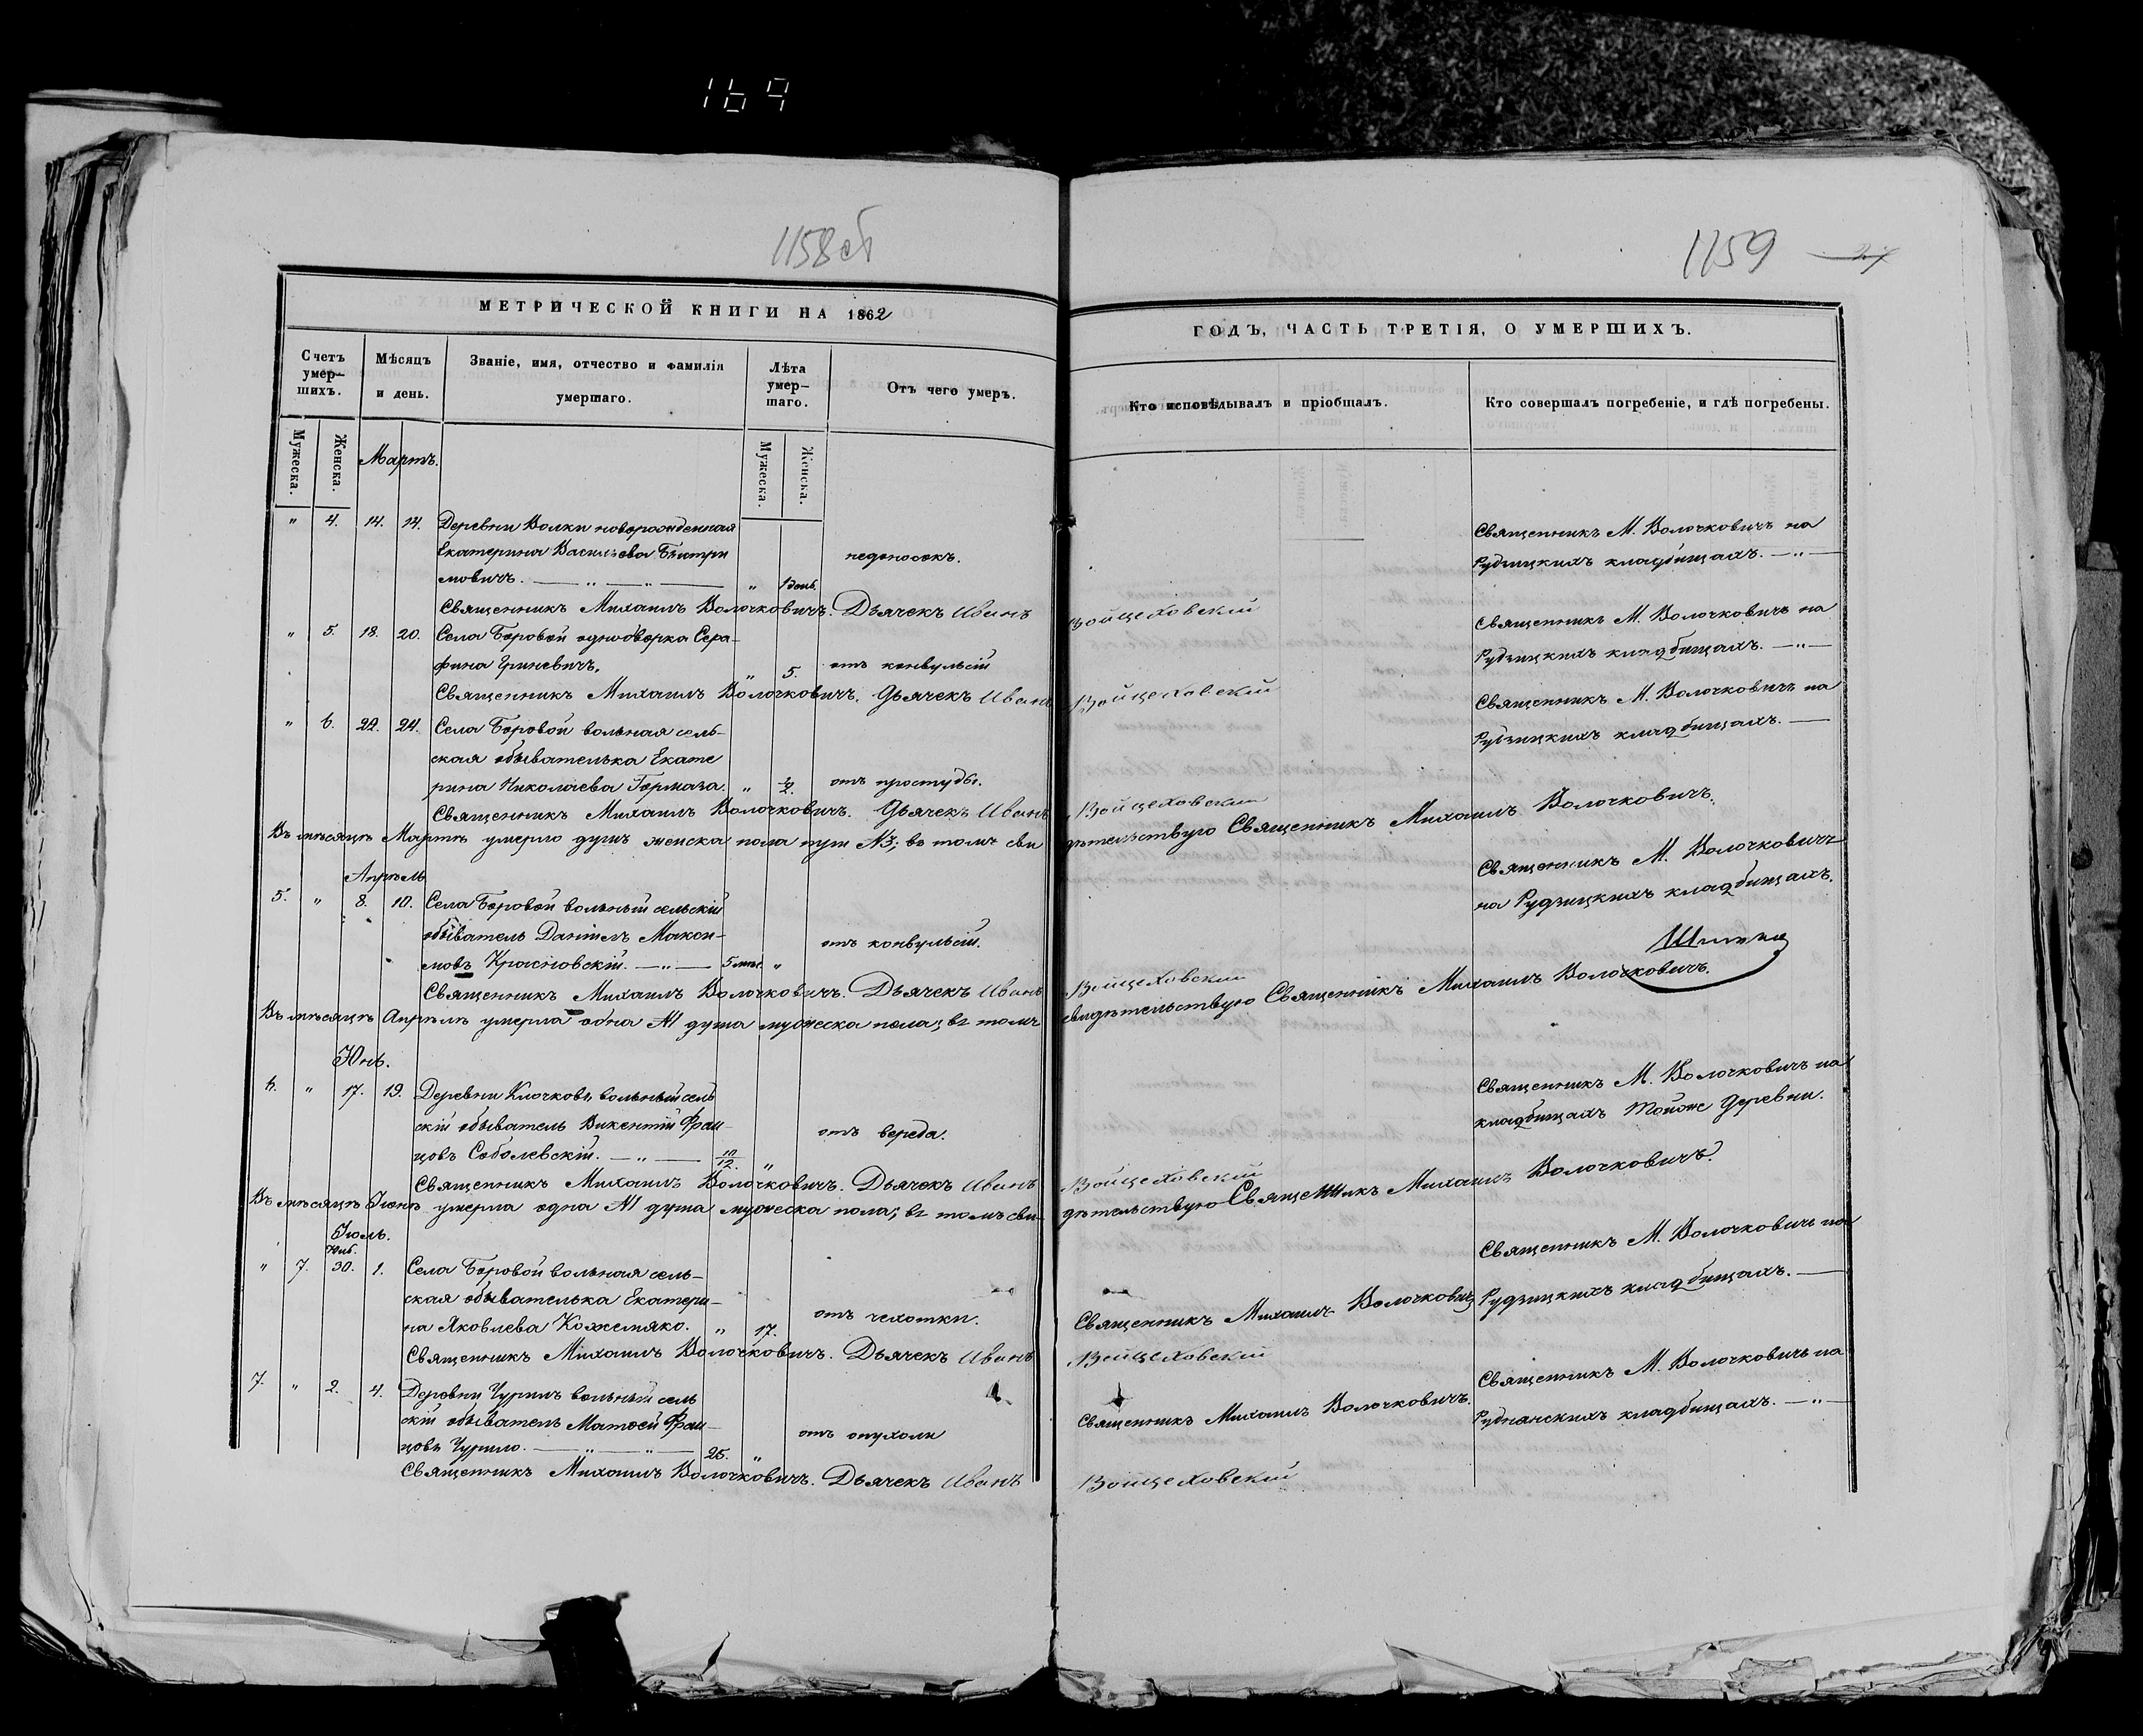 169
1158об
МЕТРИЧЕСКОЙ КНИГИ НА 1862
Счетъ умер-шихъ.
Мѣсяцъ и день.
Званіе, имя, отчество и фамилія умершаго.
Лѣта умер-шаго.
Отъ чего умеръ.
Мужеска.
Женска.
Мартъ.
Мужеска.
Женска.
" 4. 14. 14. Деревни Волки новорожденная
Екатерина Васильева
мовичъ. — " — " — " 1 день. недоносокъ.
Священникъ Михаилъ Волочковичъ. Дьячекъ Иванъ
" 5. 18. 20. Села Боровой однодворка Сера-
фина Гриневичъ. " 5. отъ конвульсій
Священникъ Михаилъ Волочковичъ. Дьячекъ Иванъ
" 6. 22. 24. Села Боровой вольная сель-
ская обывателька Екате
рина Николаева Гормаза. " 1/2 отъ простуды.
Священникъ Михаилъ Волочковичъ. Дьячекъ Иванъ
Въ мѣсяцѣ Мартѣ умерло душъ женска пола три №3; въ томъ сви
Апрѣль
5. " 8. 10. Села Боровой вольный сельскій
обыватель Даніилъ Макси-
мовъ Красновскій. — " — 5 " отъ конвульсій.
Священникъ Михаилъ Волочковичъ. Дьячекъ Иванъ
Въ мѣсяцѣ Апрѣлѣ умерла одна №1 душа мужеска пола; въ томъ
Юнь.
6. " 17. 19. Деревни Клочковъ вольный сель
скій обыватель Викентій Фран-
цовъ Соболевскій. — " — 10/12. " отъ вереда.
Священникъ Михаилъ Волочковичъ. Дьячекъ Иванъ
Въ мѣсяцѣ Іюнѣ умерла одна №1 душа мужеска пола; въ томъ сви-
Іюль.
" 7. 30. 1. Села Боровой вольная сель-
ская обывателька Екатери-
на Яковлева Кожемяко. " 17. отъ чехотки.
Священникъ Михаилъ Волочковичъ. Дьячекъ Иванъ
7. " 2. 4. Деревни Чурилъ вольный сель
скій обыватель Матѳей Фран-
цовъ Чурило. — " — " — 25. " отъ опухоли
Священникъ Михаилъ Волочковичъ. Дьячекъ Иванъ
1159
27
ГОДЪ, ЧАСТЬ ТРЕТІЯ, О УМЕРШИХЪ.
Кто исповѣдывалъ и пріобщалъ.
Кто совершалъ погребеніе, и гдѣ погребены.
Священникъ М. Волочковичъ на
Рудзицкихъ кладбищахъ. — " —
Войцеховскій
Священникъ М. Волочковичъ на
Рудзицкихъ кладбищахъ. — " —
Войцеховскій
Священникъ М. Волочковичъ на
Рудзицкихъ кладбищахъ. —
Войцеховскій
дѣтельствую Священникъ Михаилъ Волочковичъ.
Священникъ М. Волочковичъ
на Рудзицкихъ кладбищахъ.
Войцеховскій
свидѣтельствую Священникъ Михаилъ Волочковичъ.
Священникъ М. Волочковичъ на
кладбищахъ тойже деревни.
Войцеховскій
дѣтельствую Священникъ Михаилъ Волочковичъ.
Священникъ М. Волочковичъ на
Священникъ Михаилъ Волочковичъ Рудзицкихъ кладбищахъ. —
Войцеховскій
Священникъ М. Волочковичъ на
Священникъ Михаилъ Волочковичъ. Руднянскихъ кладбищахъ. — " —
Войцеховскій